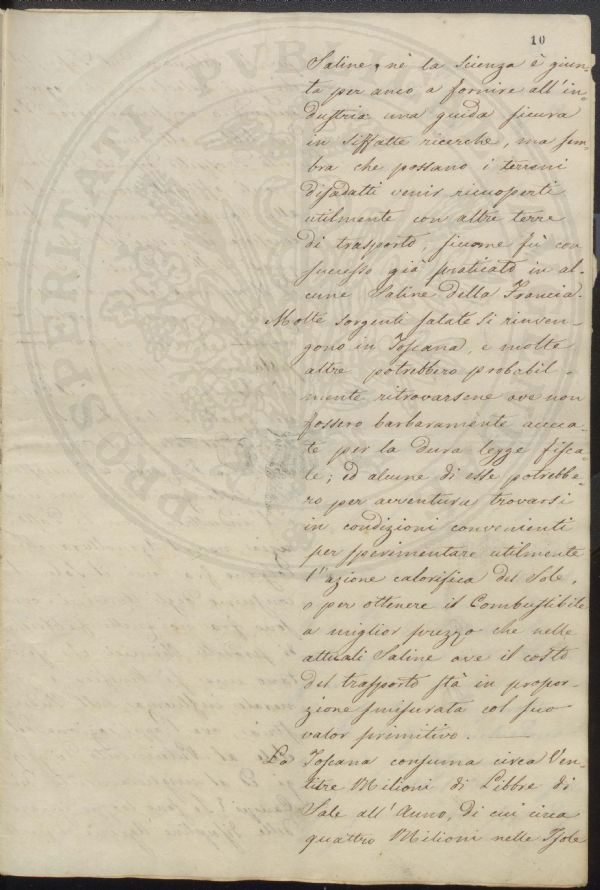 10
Saline, nè la scienza è giun-
ta per anco a fornire all'in-
dustria una guida sicura
in siffatte ricerche, ma sem-
bra che possano i terreni
disadatti venir ricuoperti
utilmente con altre terre
di trasporto, siccome fù con
successo già praticato in al-
cune Saline della Francia.
Molte sorgenti salate si rinven-
gono in Toscana, e molte
altre potrebbero probabil-
mente ritrovarsene ove non
fossero barbaramente acceca-
te per la dura legge fisca-
le; ed alcune di esse potrebbe-
ro per avventura trovarsi
in condizioni convenienti
per sperimentare utilmente
l'azione calorifica del Sole,
o per ottenere il Combustibile
a miglior prezzo che nelle
attuali Saline ove il costo
del trasporto stà in propor-
zione smisurata col suo
valor primitivo.
La Toscana consuma circa Ven-
titre Milioni di Libbre di
Sale all'Anno, di cui circa
quattro Milioni nelle Isole
PROSPERITATI PUBLICAE